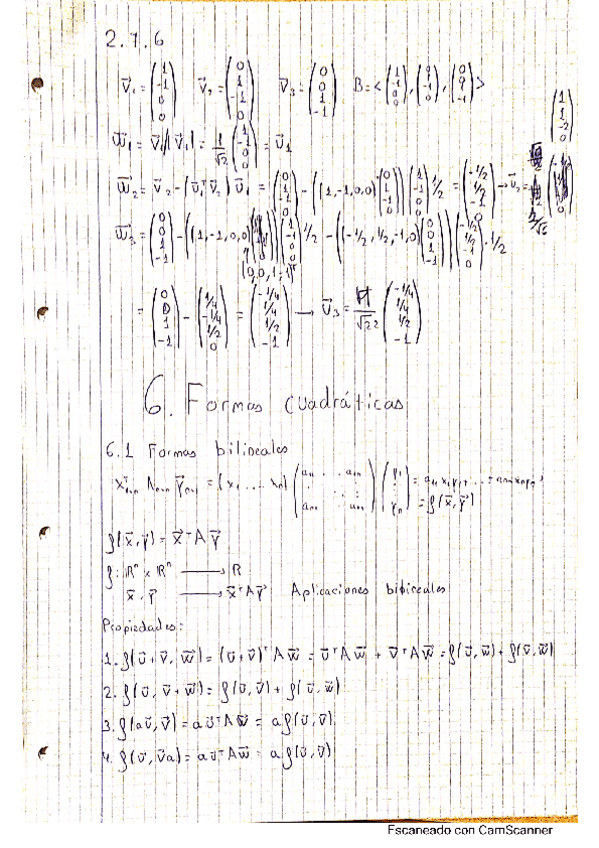 2.7.6
V⃗₁ = (1, -1, 0, 0) V⃗₂ = (0, 1, -1, 0) V⃗₃ = (0, 0, 1, -1) B = <(1, -1, 0, 0), (0, 1, -1, 0), (0, 0, 1, -1)>
(1, 1, -2, 0)
W⃗₁ = V⃗₁/|V⃗₁| = 1/√2 (1, -1, 0, 0) = U⃗₁
W⃗₂ = V⃗₂ - (U⃗₁ᵀ V⃗₂) U⃗₁ = (0, 1, -1, 0) - ((1, -1, 0, 0) (0, 1, -1, 0)) (1, -1, 0, 0) 1/2 = (-1/2, 1/2, -1, 0) → U⃗₂ =
W⃗₃ = (0, 0, 1, -1) - ((1, -1, 0, 0)) (1, -1, 0, 0) 1/2 - ((-1/2, 1/2, -1, 0) (0, 0, 1, -1)) (-1/2, 1/2, -1, 0) · 1/2
(0, 0, 1, -1)
= (0, 0, 1, -1) - (1/4, -1/4, 1/2, 0) = (-1/4, 1/4, 1/2, -1) → U⃗₃ = (-1/4, 1/4, 1/2, -1)
6. Formas cuadráticas
6.1 Formas bilineales
(x₁ ... xₙ) (a₁₁ ... a₁ₙ) (y₁ : yₙ) = a₁₁x₁y₁ + ...
= f(x⃗, y⃗)
f(x⃗, y⃗) = x⃗ᵀ A y⃗
f: ℝⁿ × ℝⁿ → ℝ
x⃗, y⃗ → x⃗ᵀ A y⃗ Aplicaciones bilineales
Propiedades:
1. f(u⃗ + v⃗, w⃗) = (u⃗ + v⃗)ᵀ A w⃗ = u⃗ᵀ A w⃗ + v⃗ᵀ A w⃗ = f(u⃗, w⃗) + f(v⃗, w⃗)
2. f(u⃗, v⃗ + w⃗) = f(u⃗, v⃗) + f(u⃗, w⃗)
3. f(au⃗, v⃗) = a u⃗ᵀ A w⃗ = a f(u⃗, v⃗)
4. f(u⃗, v⃗a) = a u⃗ᵀ A w⃗ = a f(u⃗, v⃗)
Escaneado con CamScanner